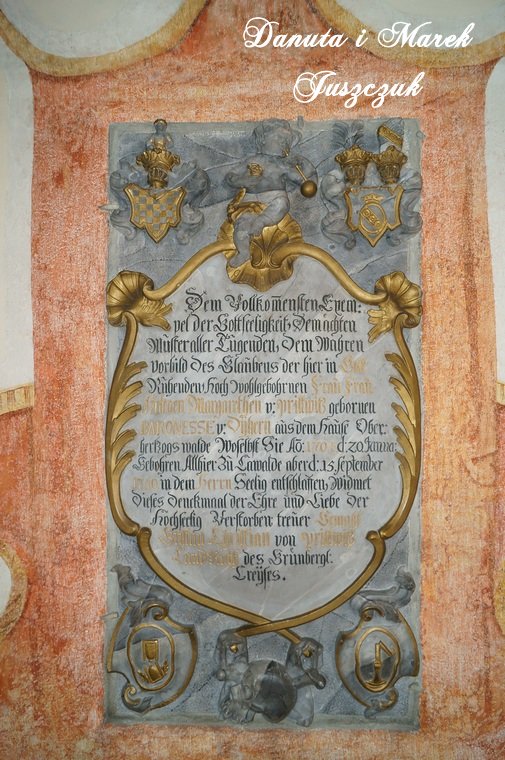 Danuta i Marek
Juszczuk
Dem Vollkom̅ensten Exem:
pel der Gottseeligkeit, Dem ächten
Muster aller Tugenden, dem Wahren
vorbild des Glaubens der hier in Gott
Ruhenden Hoch Wohlgebohrnen Frau Frau
Margarethen v: Prittwitz gebornen
BARONESSE v: Dÿhern aus dem Hause Ober:
hertzogs walde Woselbst Sie Aõ: d. 20 Janua:
Gebohren Allhier Zu Lawalde aber d: 15 September
in dem Herrn Seelig entschlaffen, Widmet
dieses denckmaal der Ehre und Liebe der
Hochseelig Verstorben treuer Gemahl
von Prittwitz
des Grünbergl:
Creÿses.